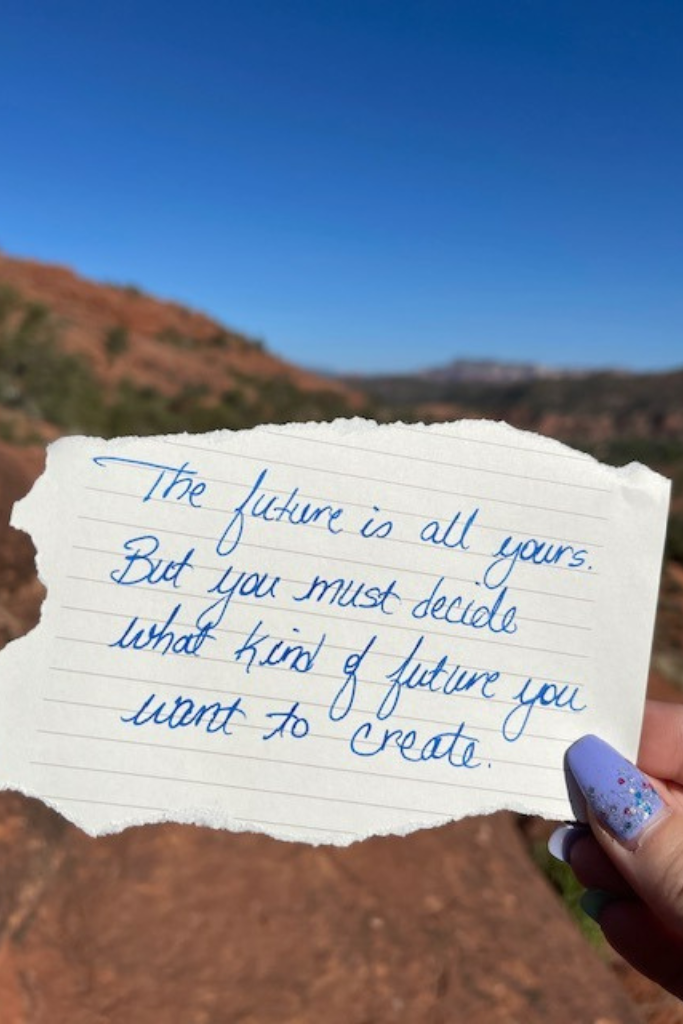 The future is all yours.
But you must decide
what kind of future you
want to create.